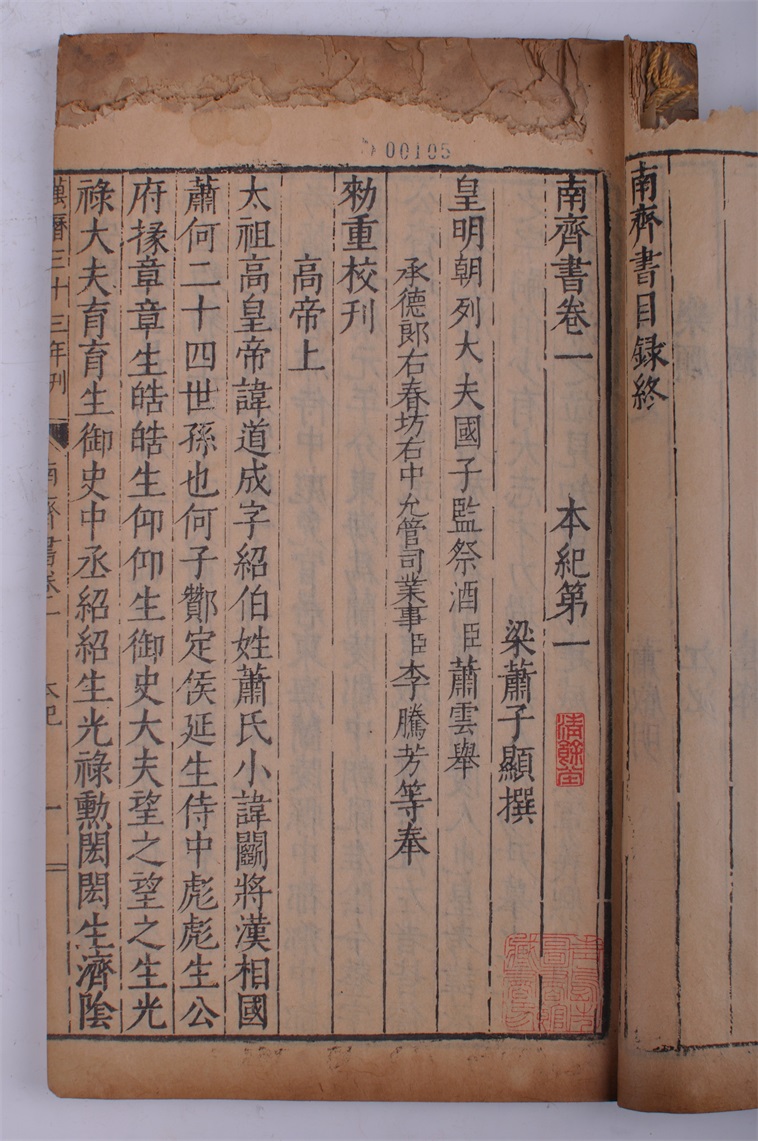 南齊書目録終
00105
南齊書卷一 本紀第一
清餘堂
梁蕭子顯撰
皇明朝列大夫國子監祭酒臣蕭雲舉
承德郎右春坊右中允管司業事臣李騰芳等奉
勑重校刊
高帝上
太祖高皇帝諱道成字紹伯姓蕭氏小諱鬭將漢相國
蕭何二十四世孫也何子酇定侯延生侍中彪彪生公
府掾章章生皓皓生仰仰生御史大夫望之望之生光
祿大夫育育生御史中丞紹紹生光祿勳閎閎生濟陰
萬曆三十三年刊 南齊書卷一 本紀 一